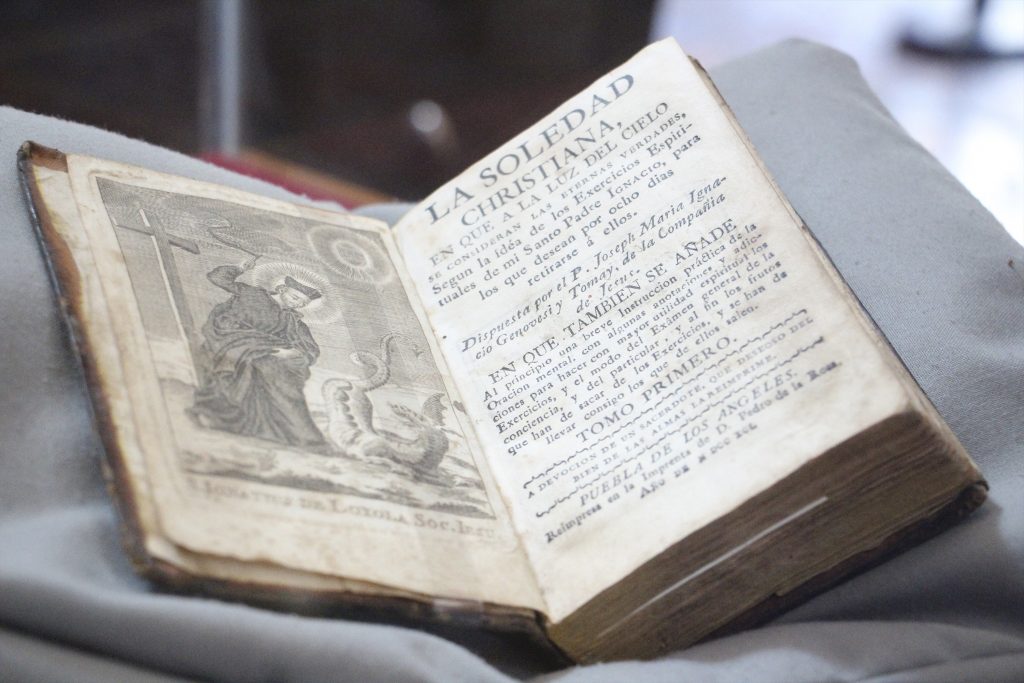 S. IGNATIUS DE LOYOLA SOC. IESU
LA SOLEDAD
CHRISTIANA,
EN QUE, A LA LUZ DEL CIELO
SE CONSIDERAN LAS ETERNAS VERDADES,
Segun la idéa de los Exercicios Espiri-
tuales de mi Santo Padre IGNACIO, para
los que desean por ocho dias
retirarse á ellos.
Dispuesta por el P. Joseph Maria Igna-
cio Genovesi y Tomay, de la Compañia
de Jesus.
EN QUE TAMBIEN SE AÑADE
Al principio una breve Instruccion práctica de la
Oracion mental, con algunas anotaciones y adic-
ciones para hacer con mayor utilidad espiritual los
Exercicios, y el modo del Exâmen general de la
conciencia, y del particular, y al fin los frutos
que han de sacar de los Exercicios, y se han de
llevar consigo los que de ellos salen.
TOMO PRIMERO.
A DEVOCION DE UN SACERDOTE, QUE DESEOSO DEL
BIEN DE LAS ALMAS LA REIMPRIME.
PUEBLA DE LOS ANGELES.
Reimpresa en la Imprenta de D. Pedro de la Rosa.
AÑO DE M DCC XCI.